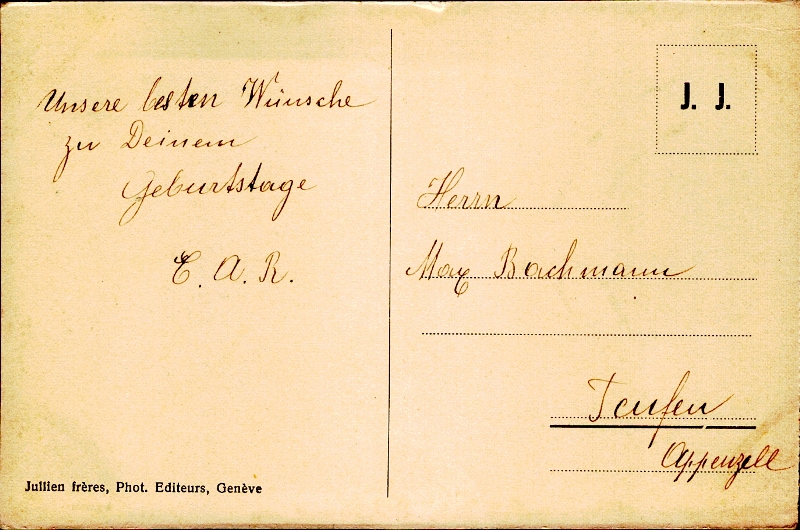 Unsere besten Wünsche
zu Deinem
Geburtstage
E. A. R.
Jullien frères, Phot. Editeurs, Genève
J. J.
Herrn
Max Bachmann
Teufen
Appenzell